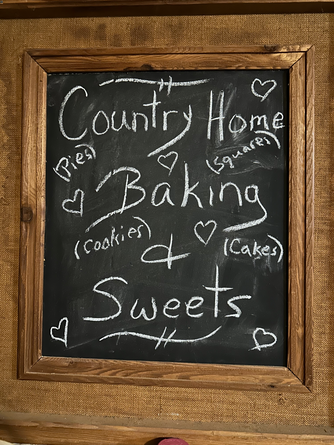 Country Home
(Pies) (Squares)
Baking
(Cookies) & (Cakes)
Sweets